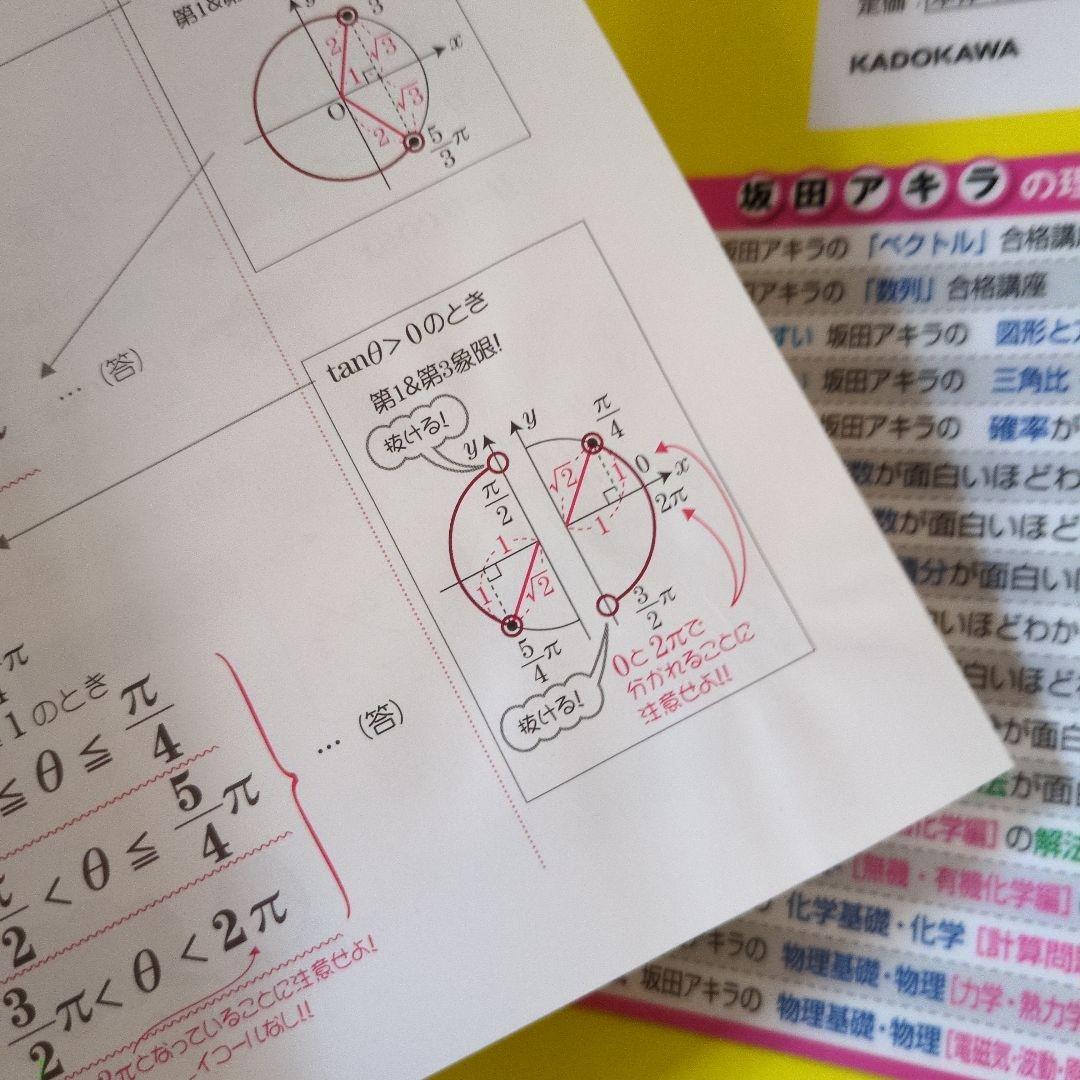 第1&第
y
3
2
√3
x
1
O
√3
2
5/3 π
… (答)
tanθ>0のとき
第1&第3象限!
抜ける!
y
y
π/4
π/2
√2
1
0
x
2π
1
1
1
√2
3/2 π
5/4 π
0と2πで
分かれることに
注意せよ!!
抜ける!
π
1のとき
≦ θ ≦ π/4
2 < θ ≦ 5/4 π
3/2 π < θ < 2π
… (答)
2πとなっていることに注意せよ!
イコールなし!!
KADOKAWA
坂田アキラの理
坂田アキラの「ベクトル」合格講座
アキラの「数列」合格講座
すい 坂田アキラの 図形と
坂田アキラの 三角比
坂田アキラの 確率が
数が面白いほどわ
数が面白いほど
積分が面白い
いほどわか
白いほど
が面白
法が面
化学編]の解法
[無機・有機化学編]
化学基礎・化学 [計算問題
坂田アキラの 物理基礎・物理[力学・熱力学
坂田アキラの 物理基礎・物理[電磁気・波動・